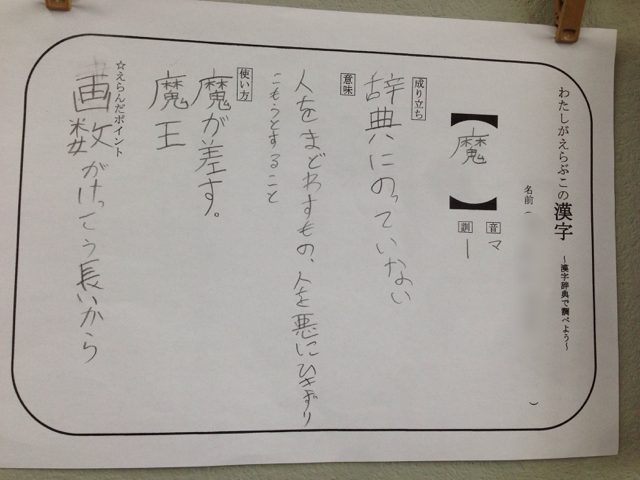 わたしがえらぶこの漢字 ～漢字辞典で調べよう～
名前（ ）
【魔】
音 マ
訓 ー
成り立ち
辞典にのっていない
意味
人をまどわすもの、人を悪にひきずり
こもうとすること
使い方
魔が差す。
魔王
☆えらんだポイント
画数がけっこう長いから